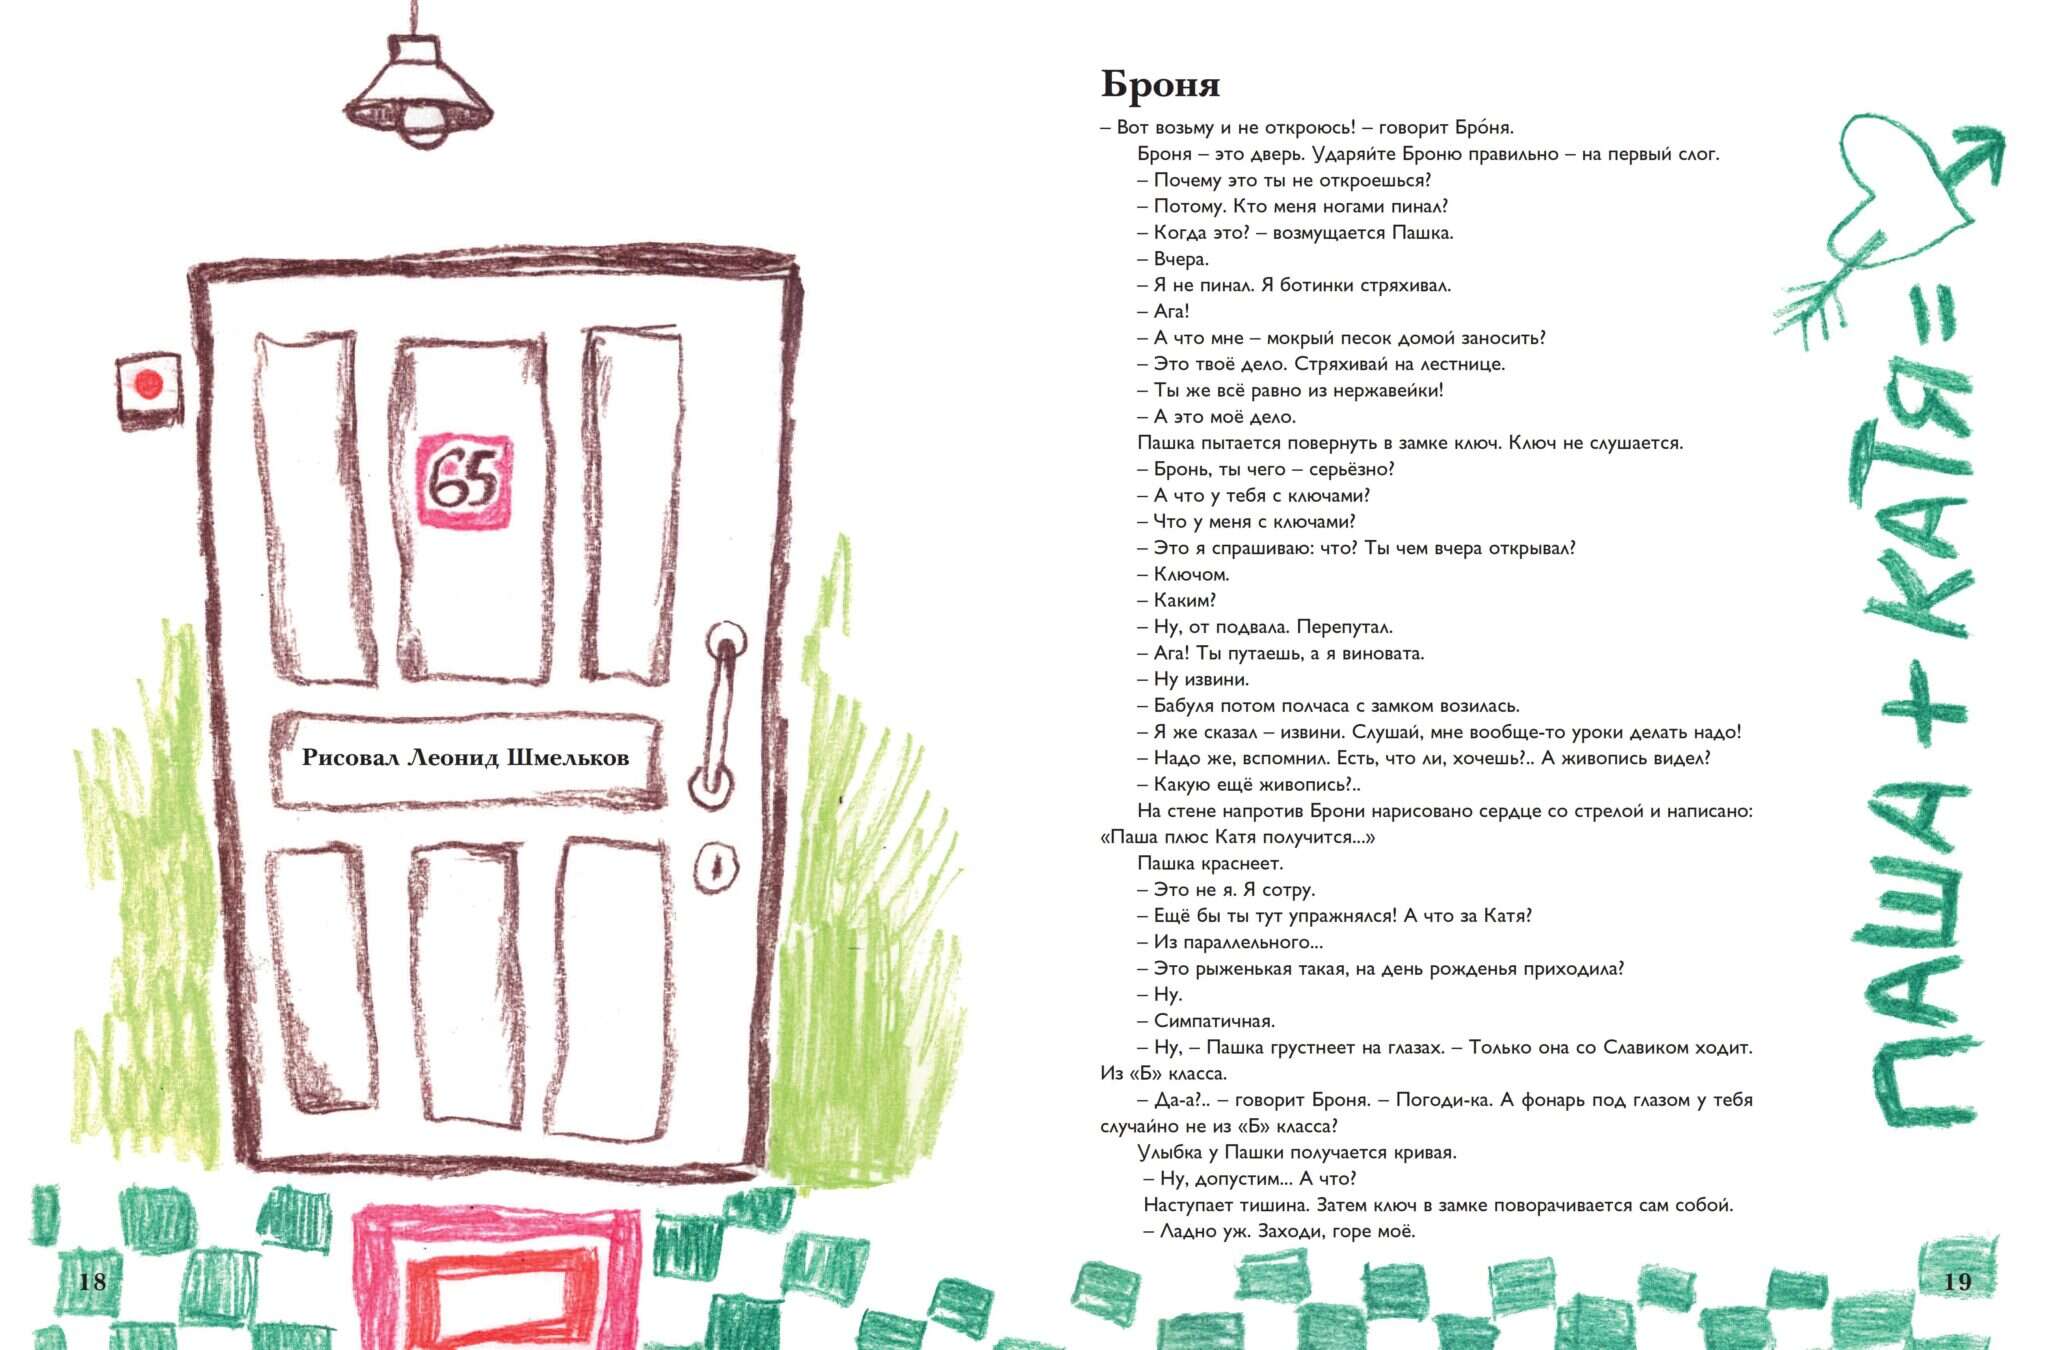 65
Рисовал Леонид Шмельков
18
Броня
– Вот возьму и не откроюсь! – говорит Брóня.
Броня – это дверь. Ударяйте Броню правильно – на первый слог.
– Почему это ты не откроешься?
– Потому. Кто меня ногами пинал?
– Когда это? – возмущается Пашка.
– Вчера.
– Я не пинал. Я ботинки стряхивал.
– Ага!
– А что мне – мокрый песок домой заносить?
– Это твоё дело. Стряхивай на лестнице.
– Ты же всё равно из нержавейки!
– А это моё дело.
Пашка пытается повернуть в замке ключ. Ключ не слушается.
– Бронь, ты чего – серьёзно?
– А что у тебя с ключами?
– Что у меня с ключами?
– Это я спрашиваю: что? Ты чем вчера открывал?
– Ключом.
– Каким?
– Ну, от подвала. Перепутал.
– Ага! Ты путаешь, а я виновата.
– Ну извини.
– Бабуля потом полчаса с замком возилась.
– Я же сказал – извини. Слушай, мне вообще-то уроки делать надо!
– Надо же, вспомнил. Есть, что ли, хочешь?.. А живопись видел?
– Какую ещё живопись?..
На стене напротив Брони нарисовано сердце со стрелой и написано:
«Паша плюс Катя получится...»
Пашка краснеет.
– Это не я. Я сотру.
– Ещё бы ты тут упражнялся! А что за Катя?
– Из параллельного...
– Это рыженькая такая, на день рожденья приходила?
– Ну.
– Симпатичная.
– Ну, – Пашка грустнеет на глазах. – Только она со Славиком ходит.
Из «Б» класса.
– Да-а?.. – говорит Броня. – Погоди-ка. А фонарь под глазом у тебя
случайно не из «Б» класса?
Улыбка у Пашки получается кривая.
– Ну, допустим... А что?
Наступает тишина. Затем ключ в замке поворачивается сам собой.
– Ладно уж. Заходи, горе моё.
ПАША + КАТЯ =
19